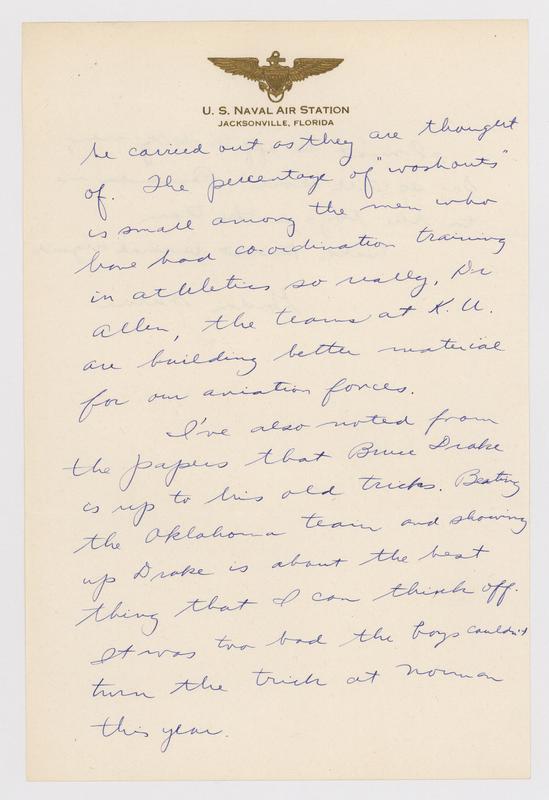 U. S. NAVAL AIR STATION
JACKSONVILLE, FLORIDA
be carried out as they are thought
of. The percentage of "washouts"
is small among the men who
have had co-ordination training
in athletics so really, Dr
Allen, the teams at K. U.
are building better material
for our aviation forces.
I've also noted from
the papers that Bruce Drake
is up to his old tricks. Beating
the Oklahoma team and showing
up Drake is about the best
thing that I can think off.
It was too bad the boys couldn't
turn the trick at Norman
this year.